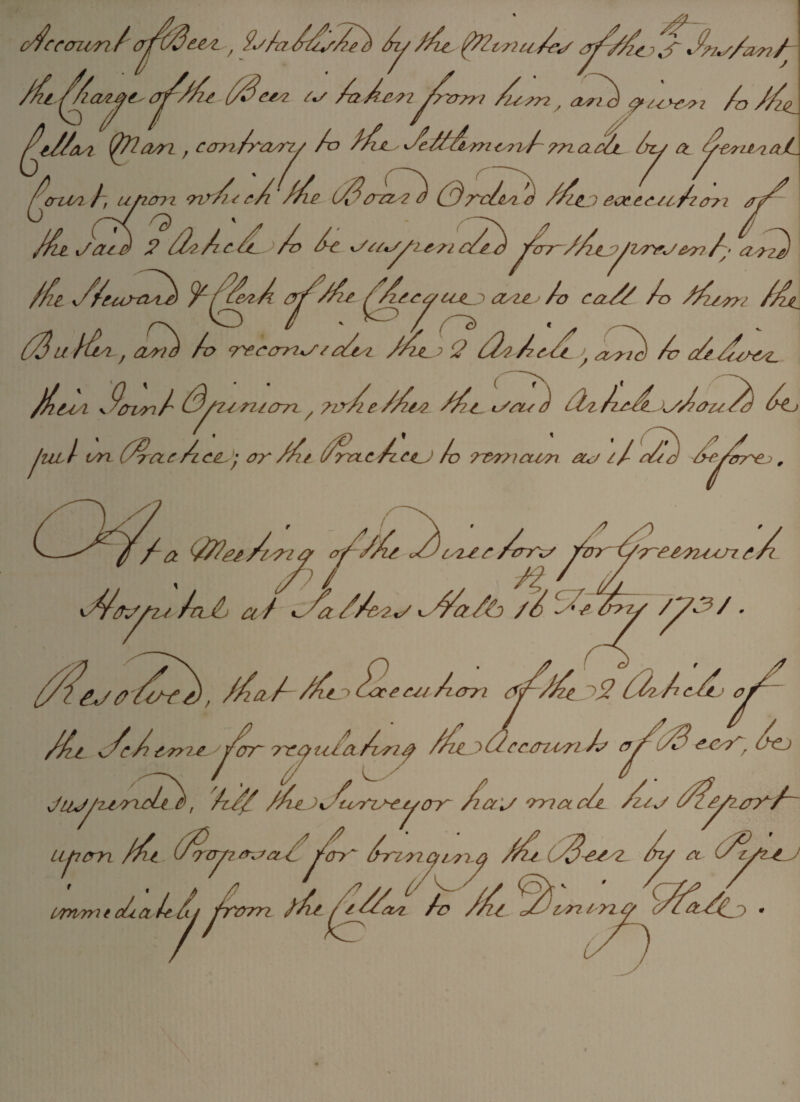 Account of Beer, Established by the Minutes of the 5th Instant
the Charge of the Beer is taken from him, and given to the
Cellar Man, contrary to the Settlement made by a General
Court, upon which the Board Order'd the execution of
the said 2 Article to be suspended for the present; and
the Steward & Clerk of the Checque are to call to them the
Butler, and to reconsider the 2 Article, and to deliver
their Joint Opinion, whether the said Article should be
put in Practice; or the Practice to remain as it did before.
At a Meeting of the Directors for Greenwich
Hospital at Salters Hall 16th Febry 1731.
Resolved, that the Execution of the 2 Article of
the Scheme for regulating the Accounts of Beer, be
suspended, till the Surveyor has made his Report
upon the Proposal for bringing the Beer by a Pipe
immediately from the Cellar to the Dining Hall.